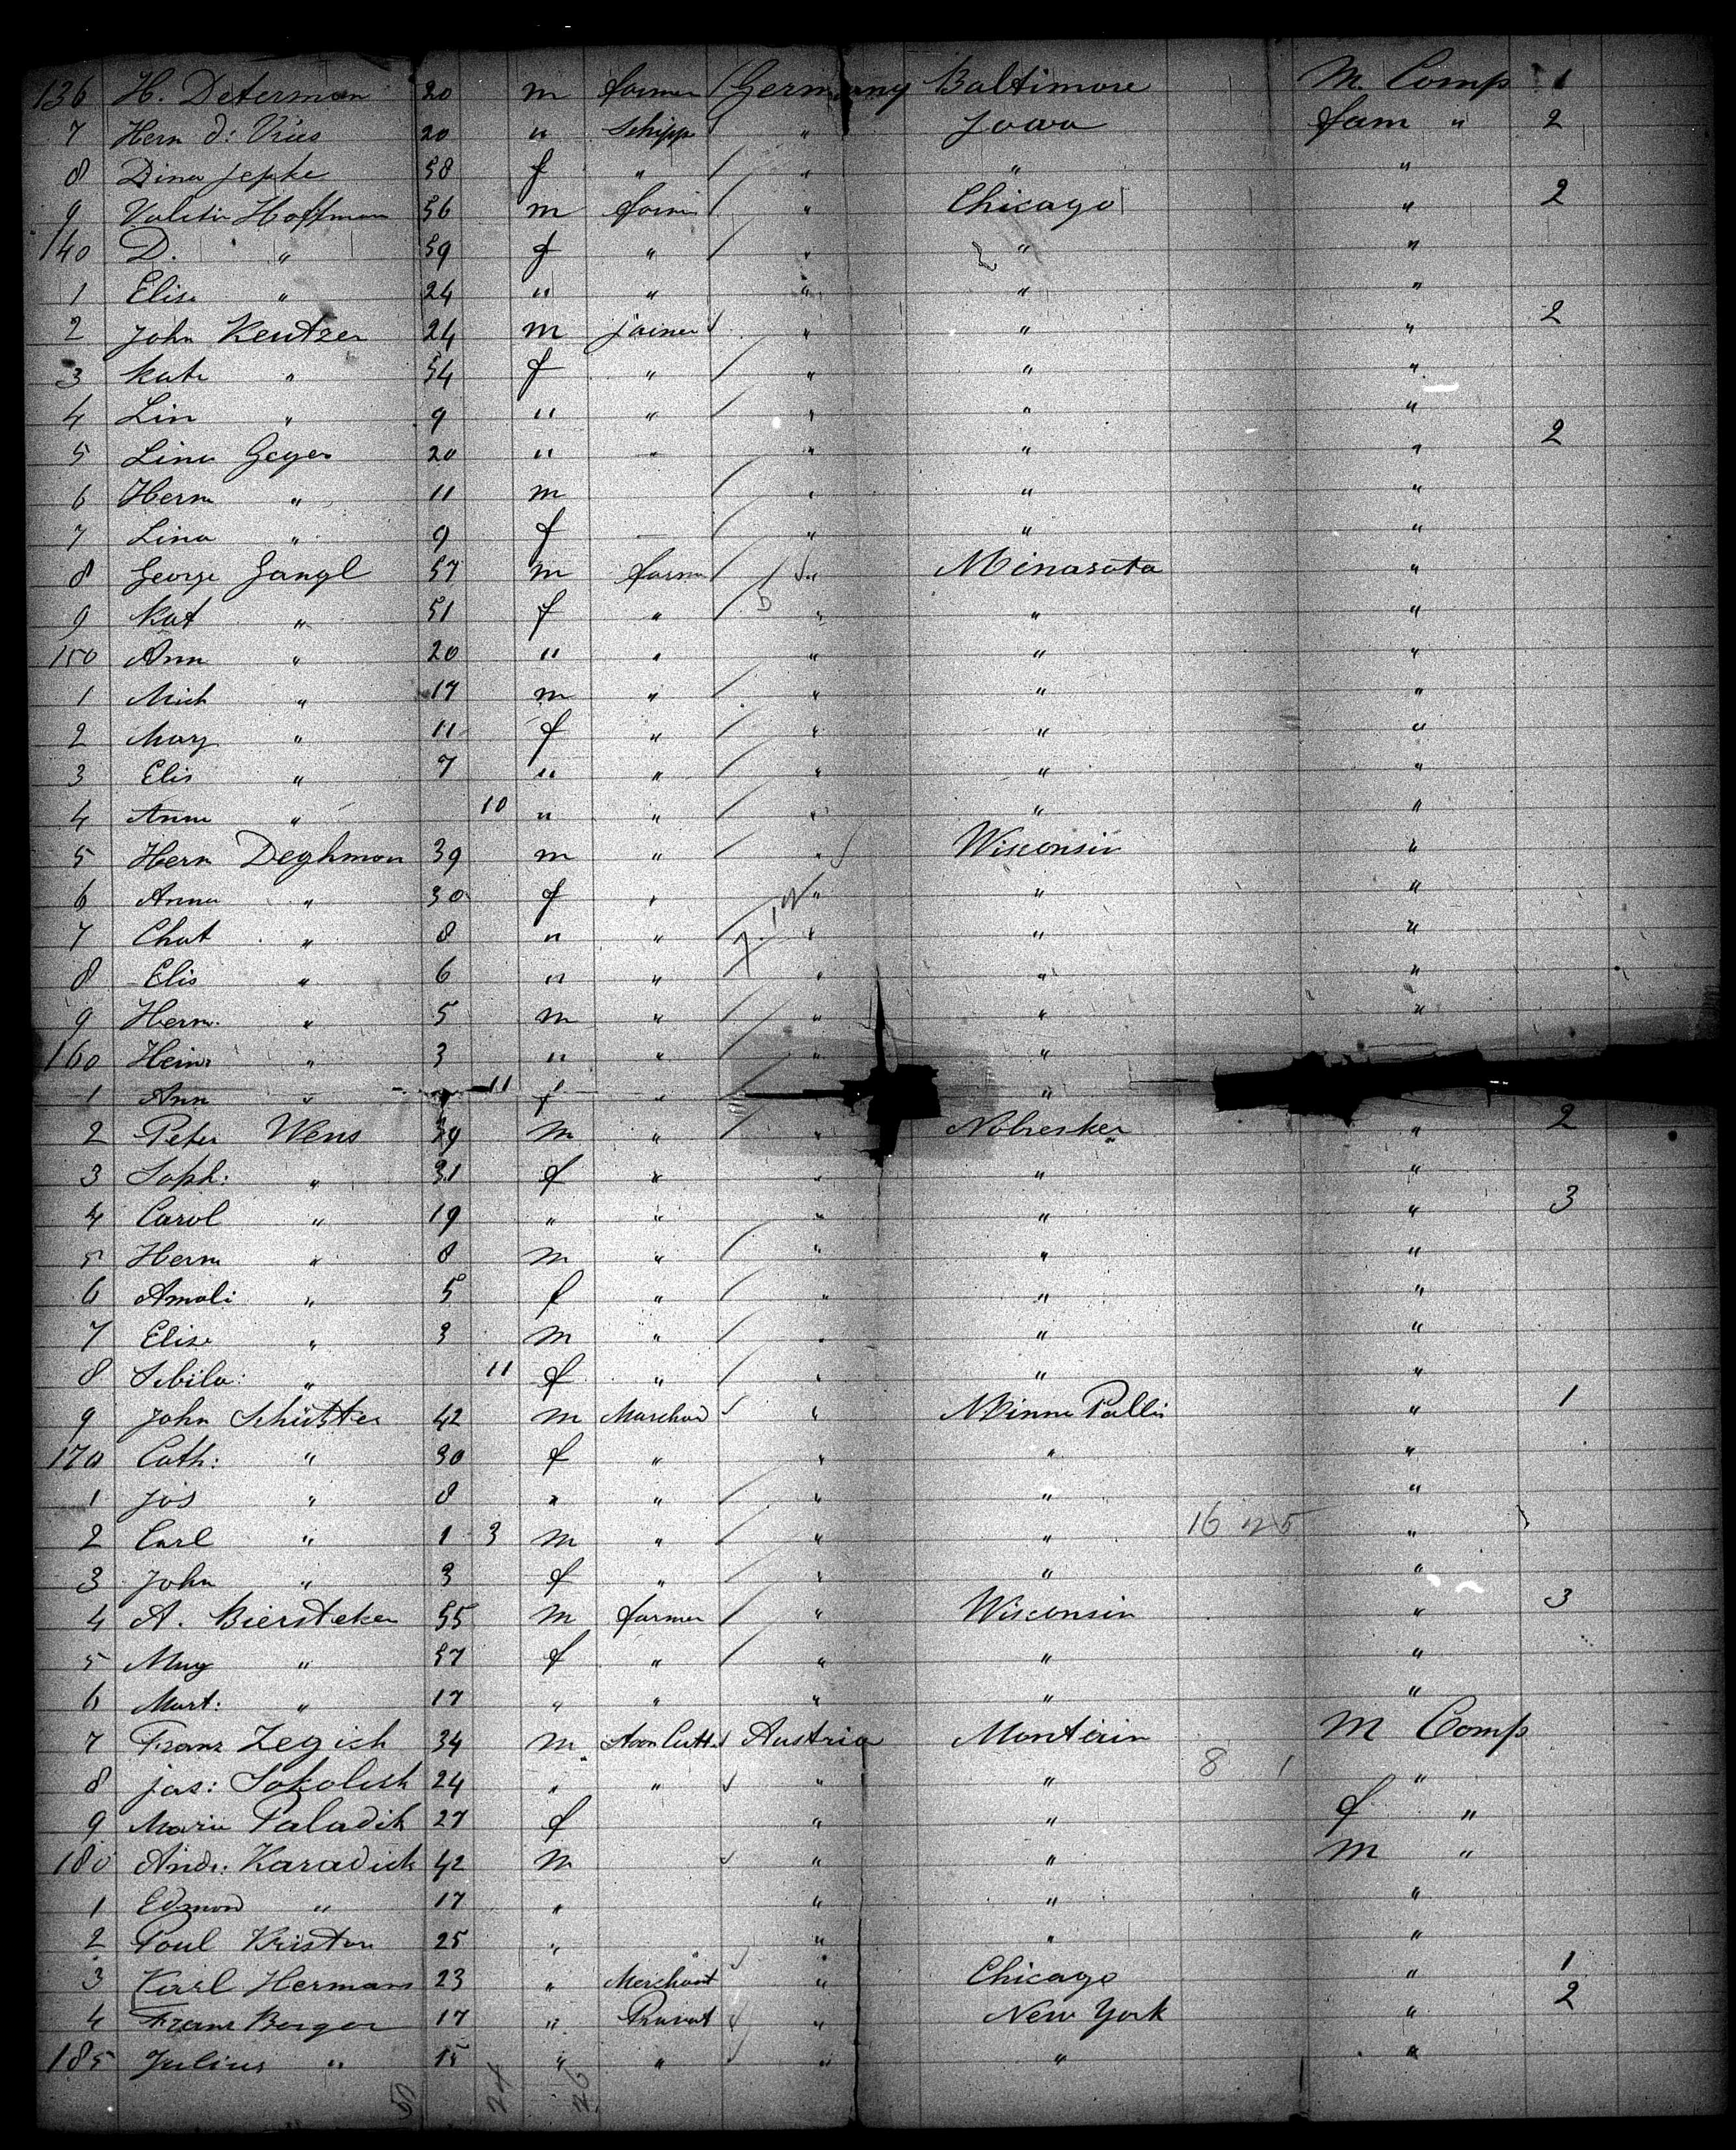 136 H. Determan 20 m farmer Germany Baltimore M. Comp 1
7 Herm d: Vries 20 " Schipp " Jowa fam " 2
8 Dina Jepke 58 f " " " "
9 Valetin Hoffman 56 m farmer " Chicago " 2
140 D. " 59 f " " " "
1 Elise " 24 " " " " "
2 John Kentzer 24 m joiner " " " 2
3 Kate " 54 f " " " "
4 Lin " 9 " " " " "
5 Lina Geyer 20 " " " " " 2
6 Herm " 11 m " " "
7 Lina " 9 f " " "
8 George Gangl 57 m farmer " Minasota "
9 Kat " 51 f " " " "
150 Ann " 20 " " " " "
1 Mich " 17 m " " " "
2 Mary " 11 f " " " "
3 Elis " 7 " " " " "
4 Anna " 10 " " " " "
5 Herm Deghmon 39 m " " Wisconsin "
6 Anna " 30 f " " " "
7 Chat " 8 " " " " "
8 Elis " 6 " " " " "
9 Herm. " 5 m " " " "
160 Heinr " 3 " " " "
1 Ann " 11 f " "
2 Peter Wens 39 m " " Nobresker " 2
3 Soph: " 31 f " " " "
4 Carol " 19 " " " " " 3
5 Herm " 8 m " " " "
6 Amali " 5 f " " " "
7 Elise " 3 m " " " "
8 Sibila: " 11 f " " " "
9 John Schütter 42 m Marchand " Minne Pallis " 1
170 Cath: " 30 f " " " "
1 Jos " 8 " " " " "
2 Carl " 1 3 m " " " 16 25 "
3 John " 3 f " " " "
4 A. Biersteker 55 m farmer " Wisconsin " 3
5 Mary " 57 f " " " "
6 Mart: " 17 " " " " "
7 Franz Zegich 34 m Austria Montain M Comp
8 Jos: Sokolich 24 " " " " 8 1 "
9 Maria Paladich 27 f " " f "
180 Andr: Karadich 42 m " " M "
1 Edmond " 17 " " " "
2 Paul Kristan 25 " " " "
3 Karl Hermans 23 " Merchant " Chicago " 1
4 Franz Berger 17 " Privat " New York " 2
185 Julius " 15 " " " " "
50 24 26